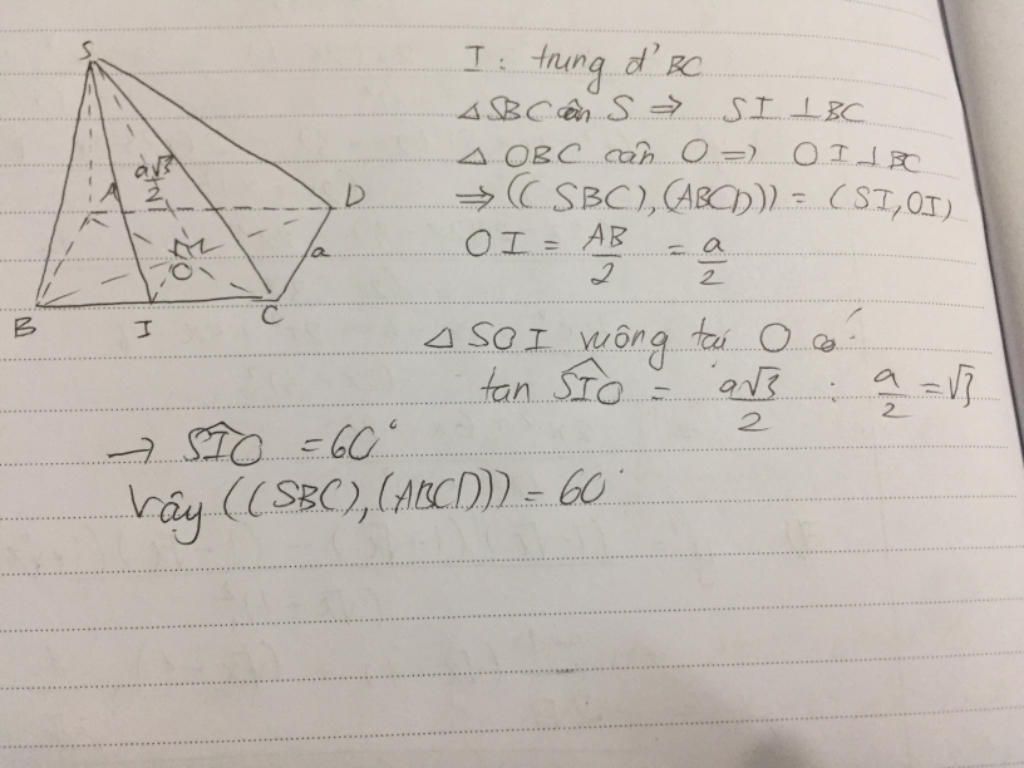 S
I : trung đ' BC
△SBC cân S ⇒ SI ⊥ BC
△ OBC cân O ⇒ OI ⊥ BC
⇒ ((SBC), (ABCD)) = (SI, OI)
OI = AB/2 = a/2
a√3/2
A
D
a
O
B
I
C
△ SOI vuông tại O có:
tan SIO = a√3/2 : a/2 = √3
→ SIO = 60°
Vậy ((SBC), (ABCD)) = 60°